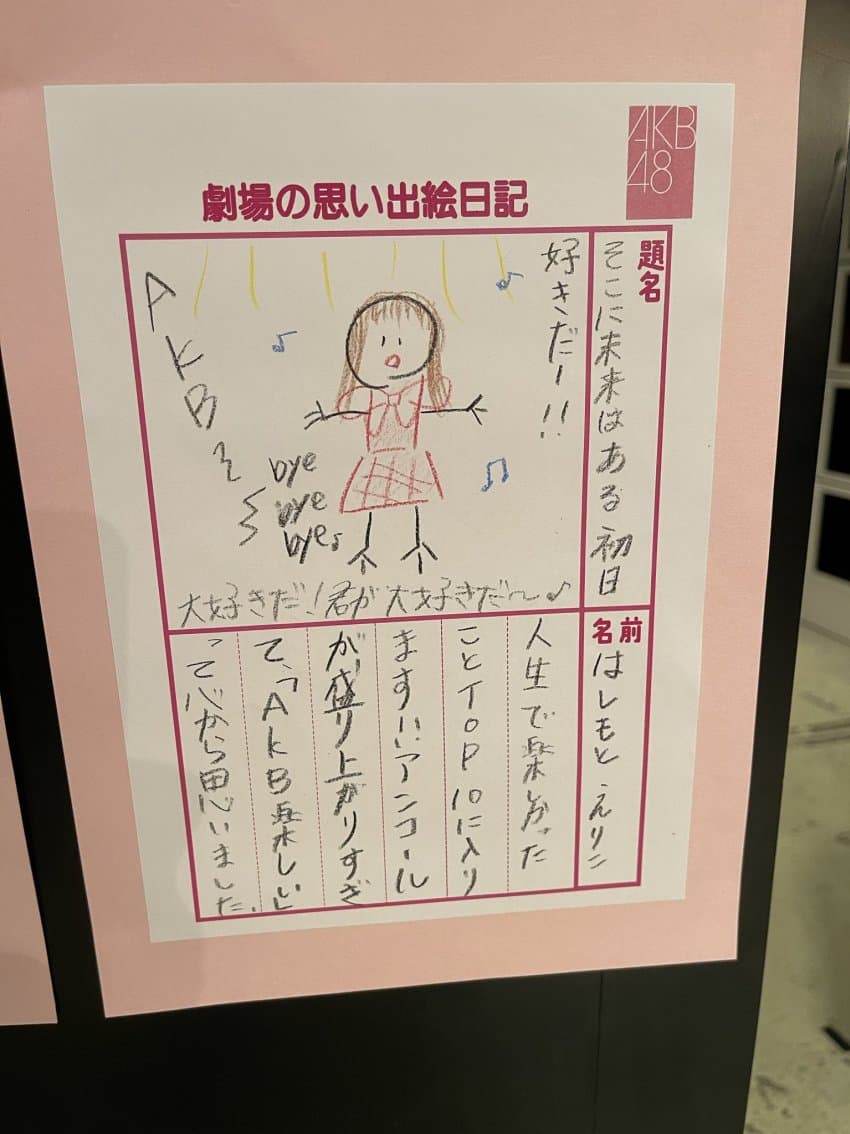 AKB
48
劇場の思い出絵日記
題名
そこに未来はある 初日
名前
はしもと えりこ
好きだー!!
AKB〜〜
bye
bye
bye♪
大好きだ!君が大好きだ〜♪
人生で楽しかった
ことTOP10に入り
ます!!アンコール
が盛り上がりすぎ
て、「AKB楽しい」
って心から思いました.